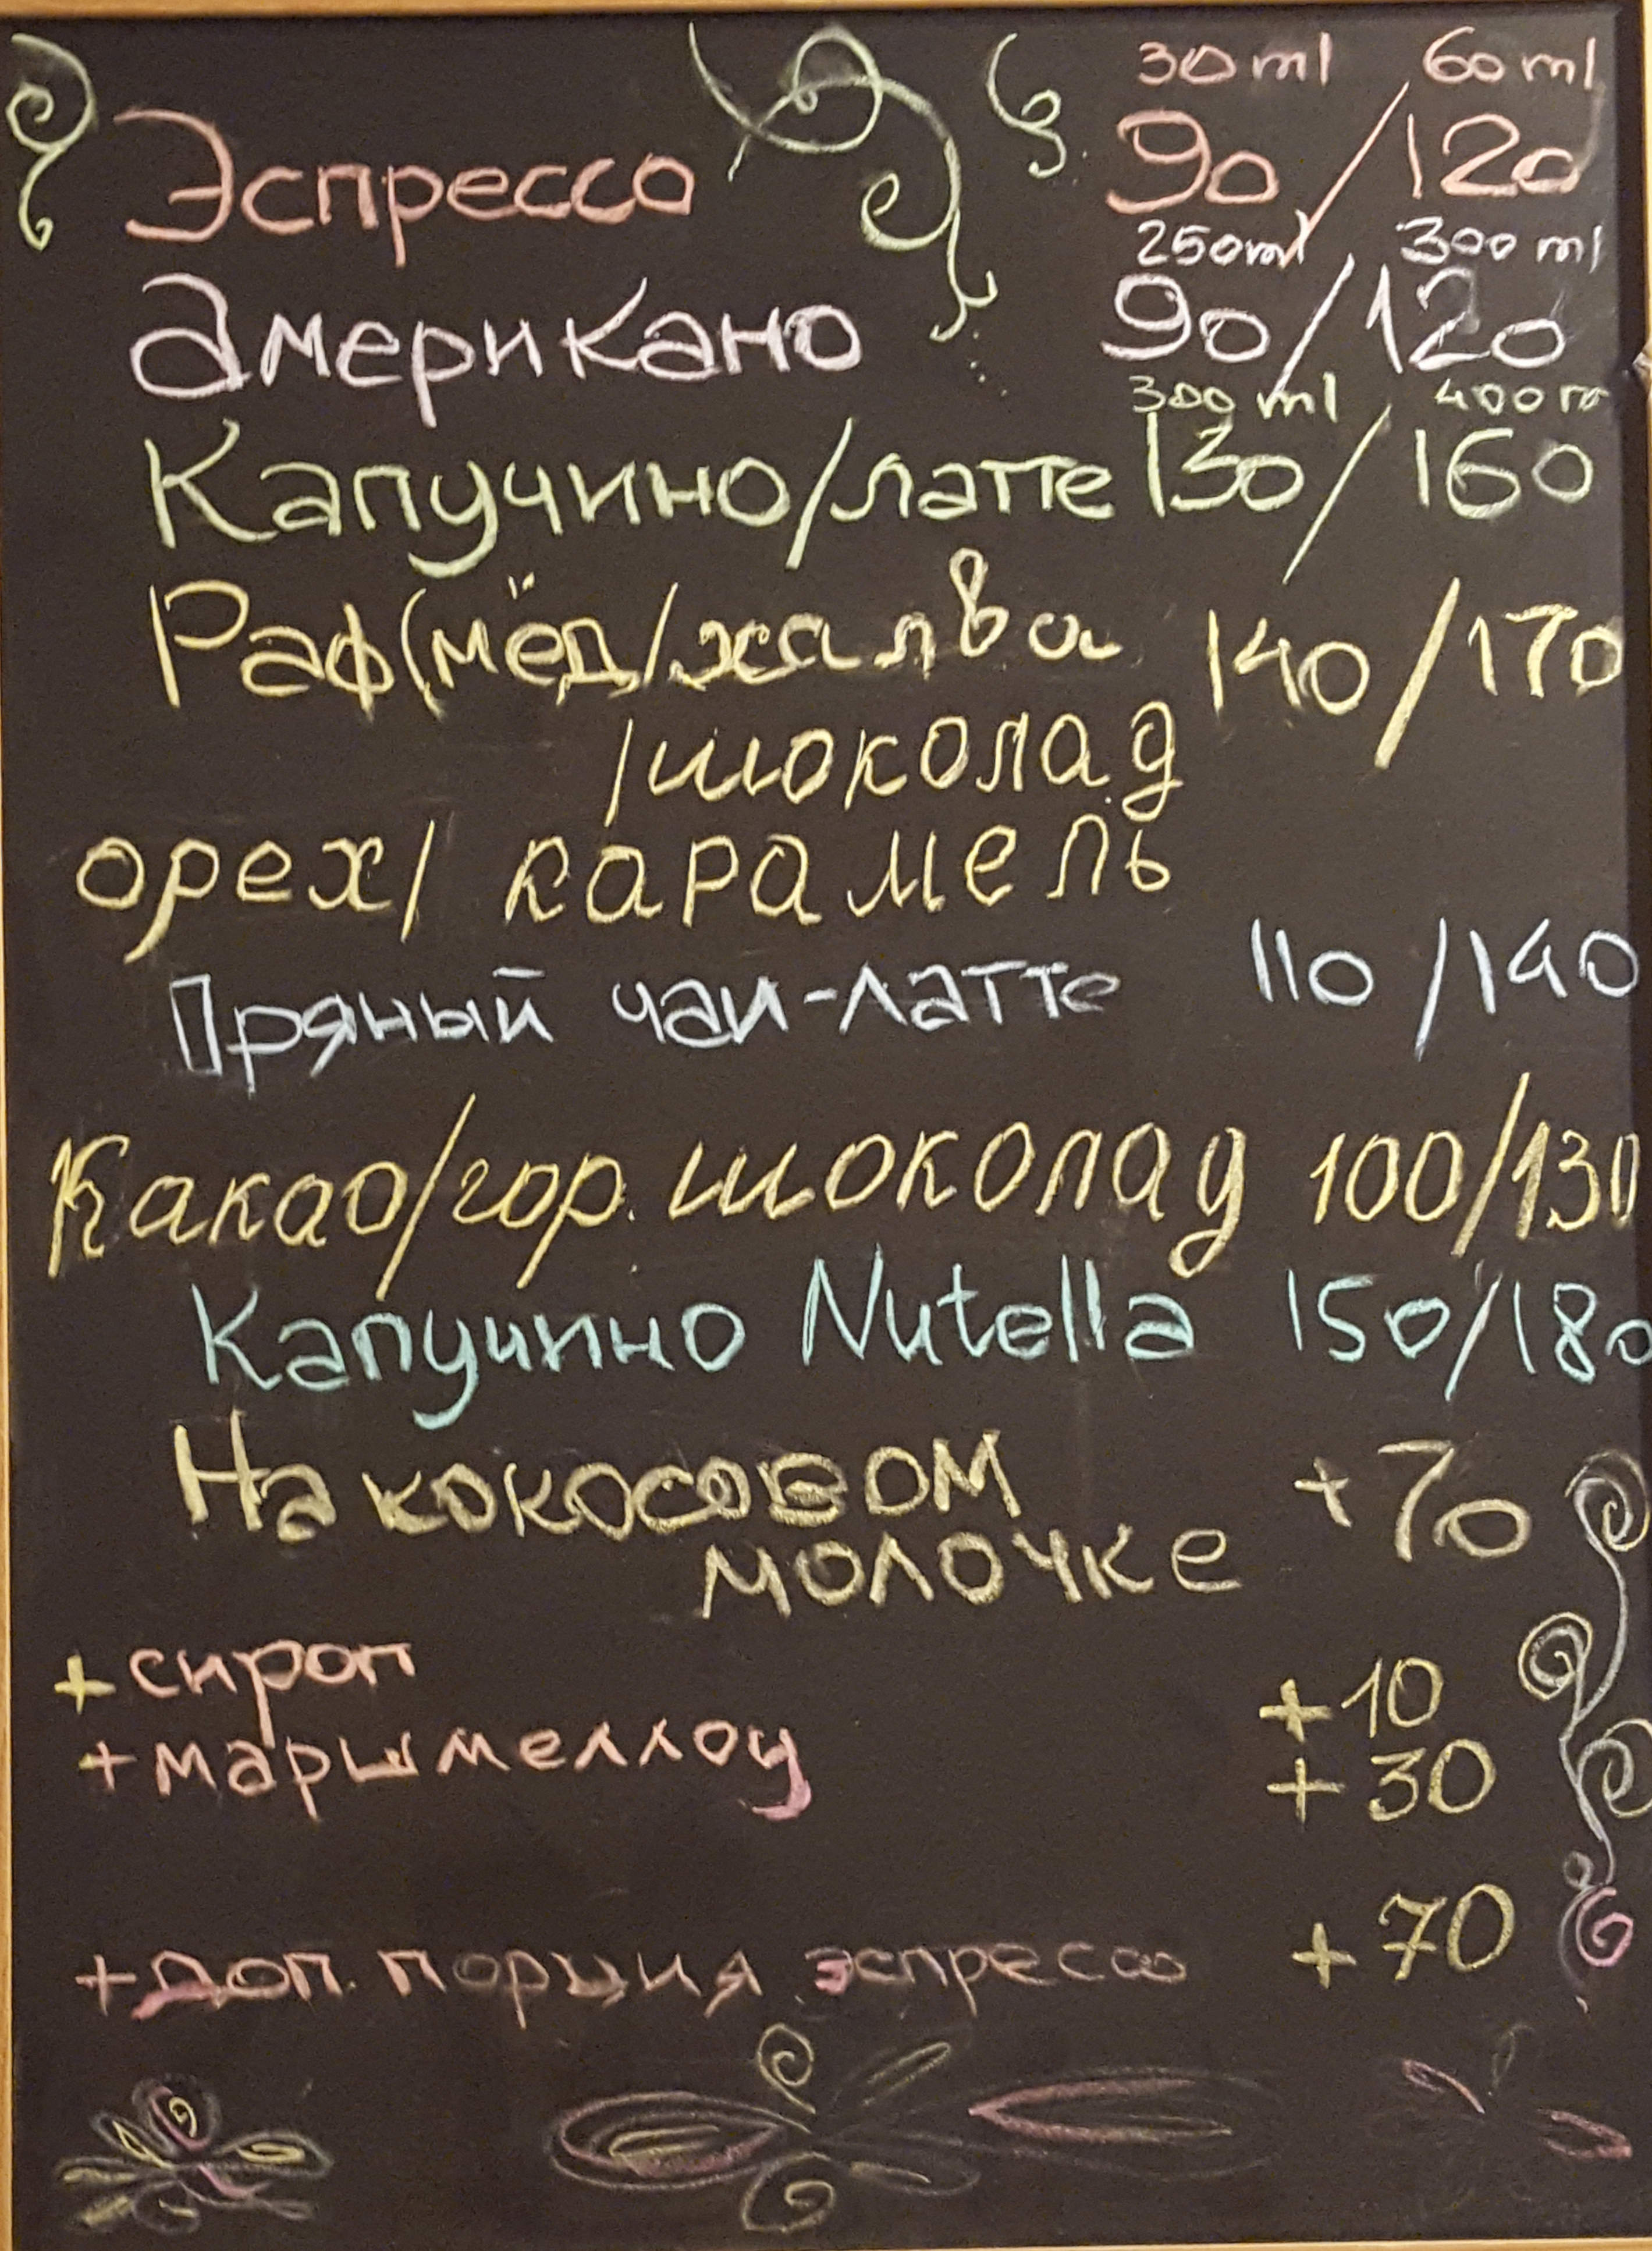 30 ml / 60 ml
Эспрессо 90 / 120
250ml / 300 ml
Американо 90/120
300 ml 400 m
Капучино/латте 130/160
Раф(мёд/халва 140/170
/шоколад
орех/ карамель
Пряный чаи-латте 110/140
Какао/гор. шоколад 100/130
Капучино Nutella 150/180
На кокосовом +70
молочке
+сироп +10
+маршмеллоу +30
+доп. порция эспрессо +70